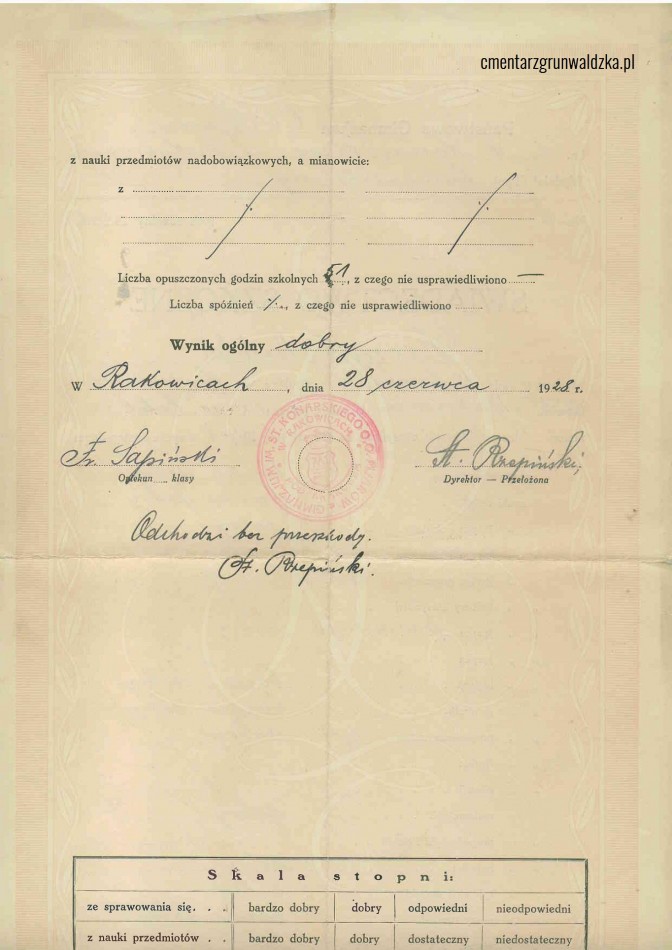 cmentarzgrunwaldzka.pl
z nauki przedmiotów nadobowiązkowych, a mianowicie:
z
Liczba opuszczonych godzin szkolnych 51, z czego nie usprawiedliwiono —
Liczba spóźnień %, z czego nie usprawiedliwiono
Wynik ogólny dobry
W Rakowicach, dnia 28 czerwca 1928. r.
Fr. Sapiński St. Rzepiński,
Opiekun klasy Dyrektor — Przełożona
GIMNAZJUM IM. ST. KONARSKIEGO O.O. PIJARÓW
W RAKOWICACH
Odchodzi bez przeszkody.
St. Rzepiński.
Skala stopni:
ze sprawowania się. . . bardzo dobry dobry odpowiedni nieodpowiedni
z nauki przedmiotów . . bardzo dobry dobry dostateczny niedostateczny